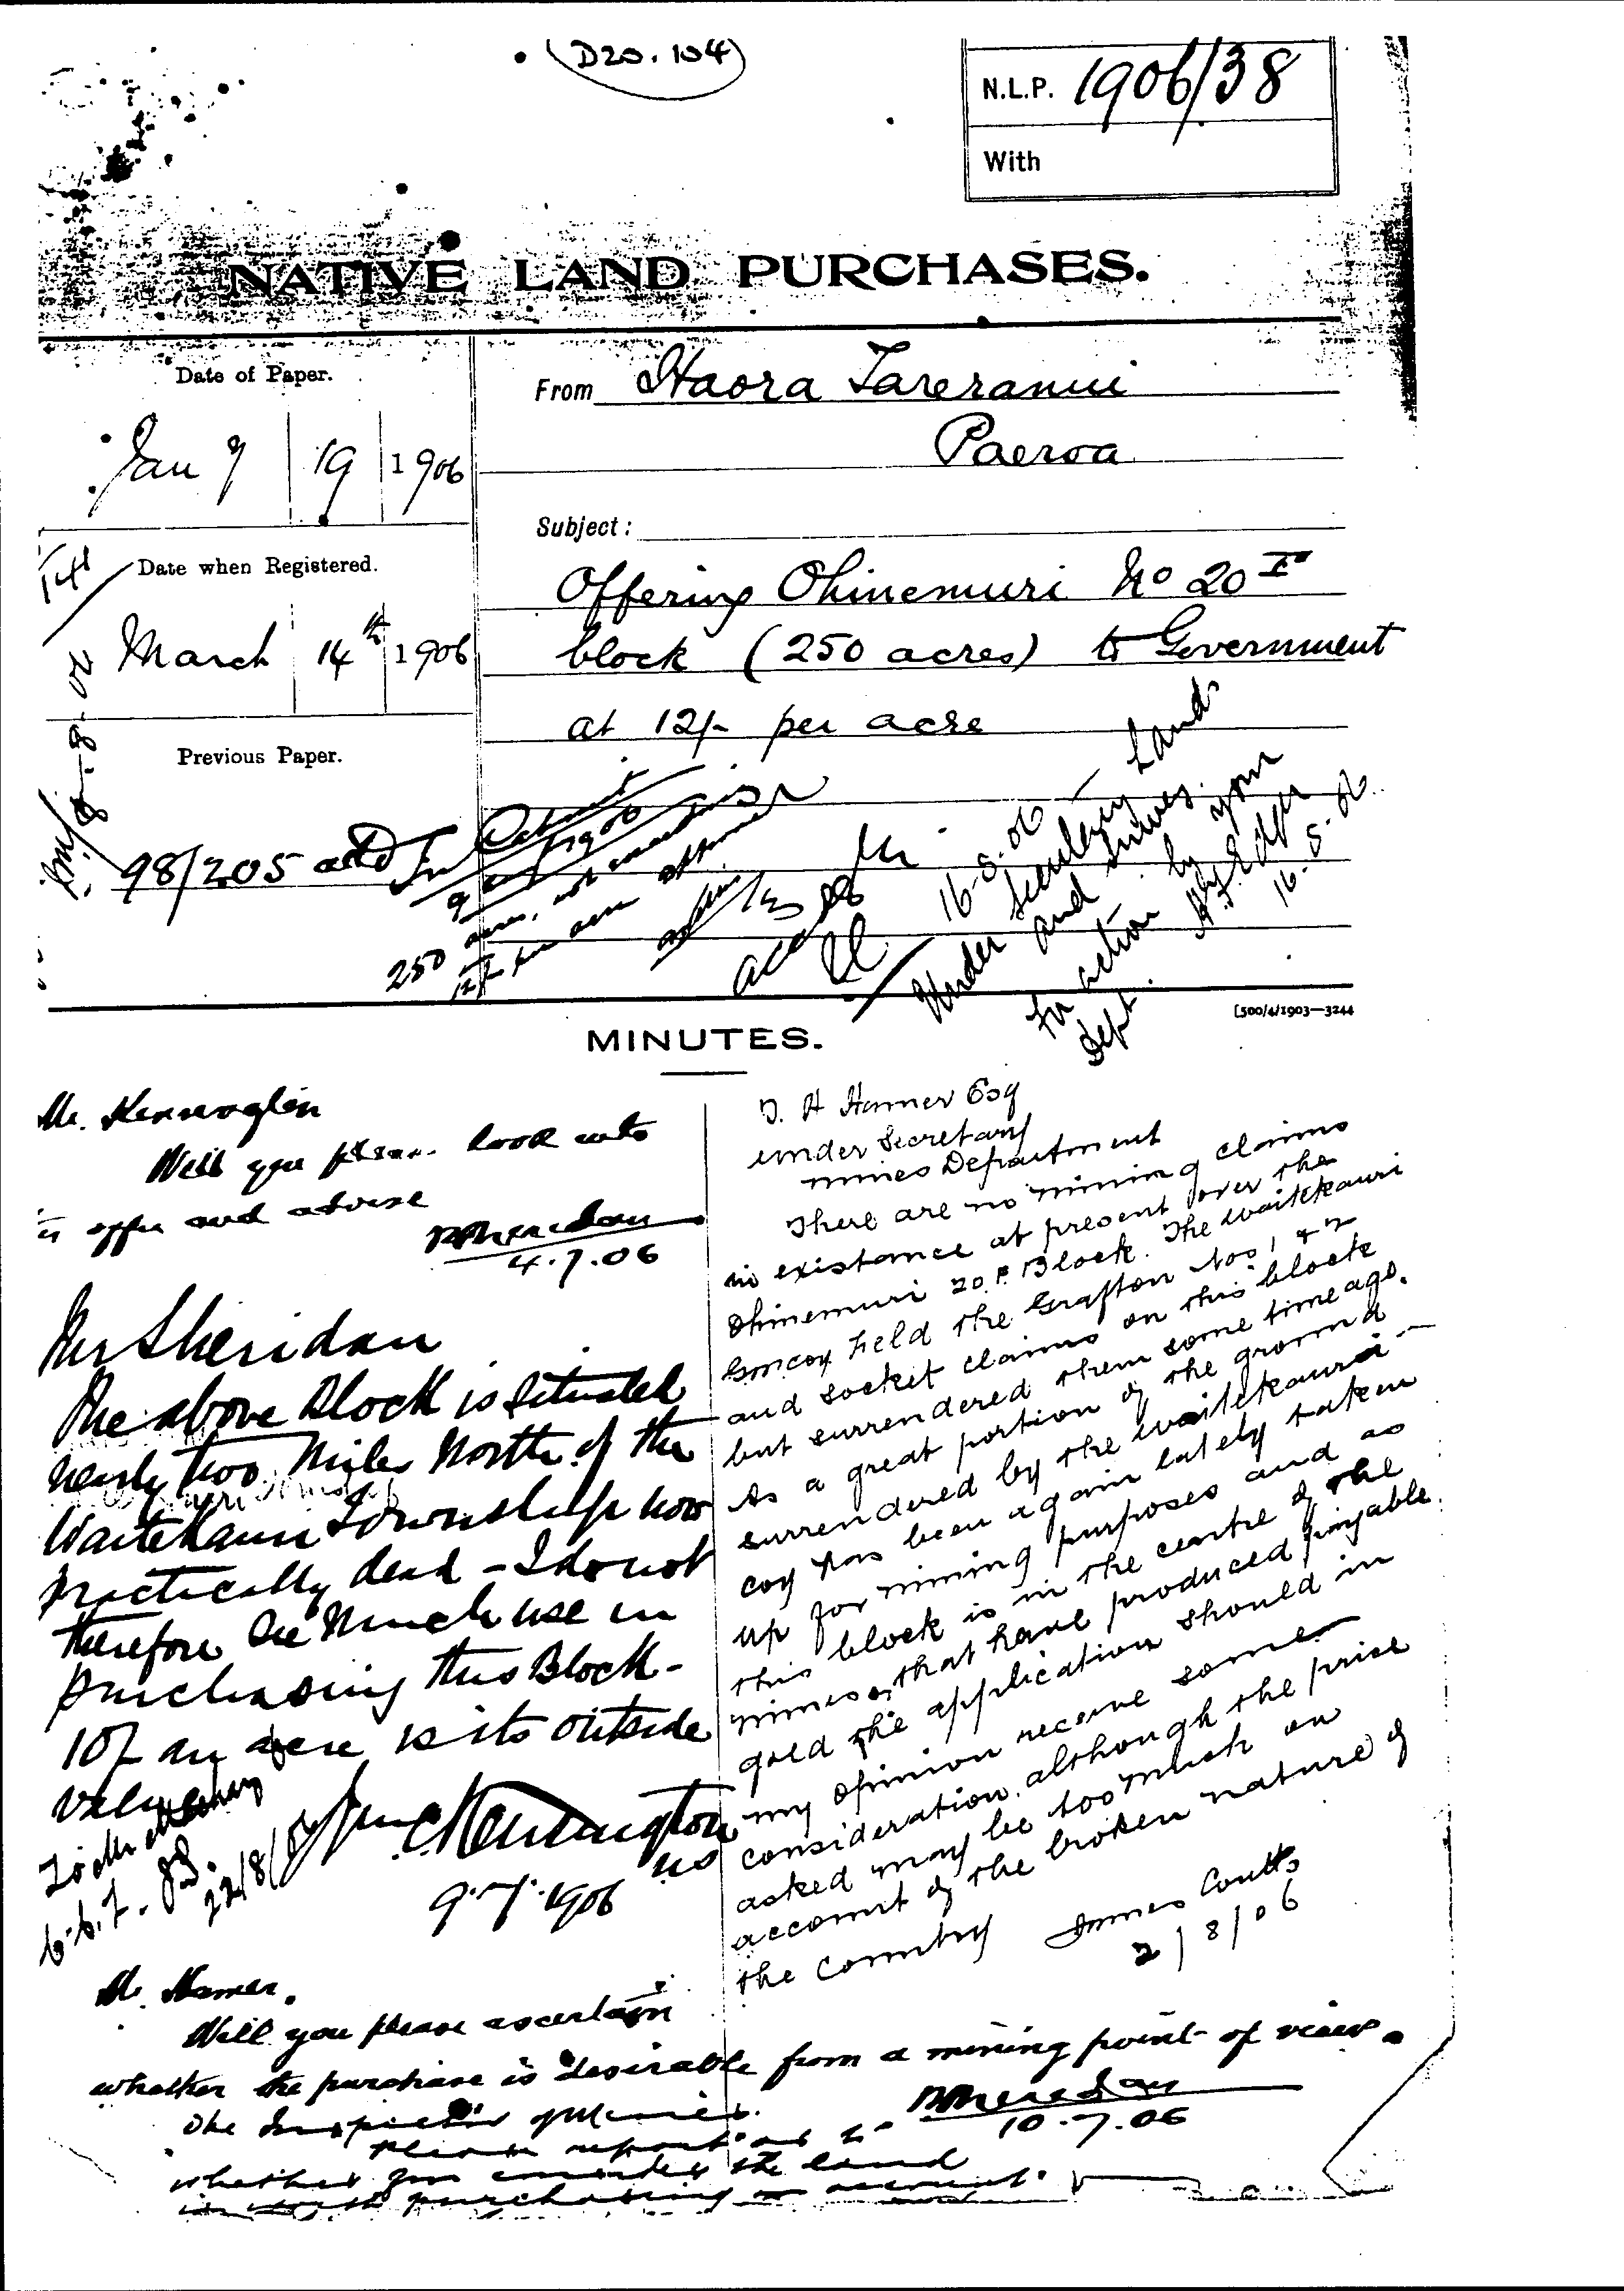 (D20.104)
N.L.P. 1906/38
With
NATIVE LAND PURCHASES.
Date of Paper.
Jan 9 19 1906
Date when Registered.
March 14th 1906
Previous Paper.
98/205
From Haora Tareranui
Paeroa
Subject:
Offering Ohinemuri No 20
block (250 acres) to Government
at 12/- per acre
In Cabinet
1906
250
12/- per acre
16-8-06
Under Secretary Lands
and Mines
for action by your
Dept.
16.8.06
[500/4/1903—3244
MINUTES.
Mr. Kensington
Will you please look into
offer and advise
4.7.06
Mr Sheridan
The above Block is situated
nearly two Miles North of the
Waitekauri Township now
practically dead - I do not
therefore see Much use in
purchasing this Block -
10/- an acre is its outside
value
Kensington
US
9.7.1906
22/8/06
Mr. Hamer.
Will you please ascertain
whether the purchase is desirable from a mining point of view.
10.7.06
The Inspector of Mines.
Please report as to
whether you consider the land
purchasing
T. H Hamer Esq
under Secretary
mines Department
There are no mining claims
in existance at present over the
Ohinemuri 20 F. Block. The Waitekauri
Gmcoy held the Grafton Nos 1 & 2
and Socket claims on this block
but surrendered them some time ago.
As a great portion of the ground
surrendered by the Waitekauri
coy has been again lately taken
up for mining purposes and as
this block is in the centre of the
mines that have produced payable
gold the application should in
my opinion receive some
consideration. although the price
asked may be too much on
account of the broken nature of
the Country James Coutts
2/8/06